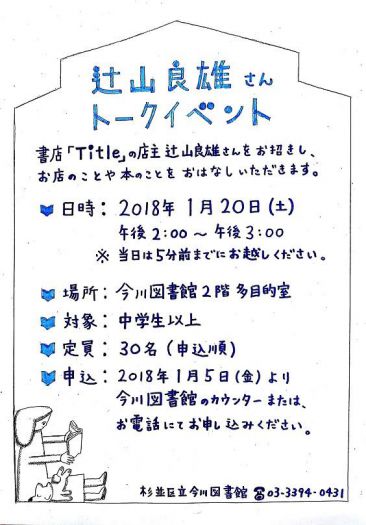 辻山良雄さん
トークイベント
書店「Title」の店主 辻山良雄さんをお招きし、
お店のことや本のことを おはなしいただきます。
日時：2018年 1月20日(土)
午後2:00～午後3:00
※ 当日は5分前までにお越しください。
場所：今川図書館2階 多目的室
対象：中学生以上
定員：30名（申込順）
申込：2018年1月5日(金)より
今川図書館のカウンターまたは、
お電話にてお申し込みください。
杉並区立今川図書館 ☎03-3394-0431